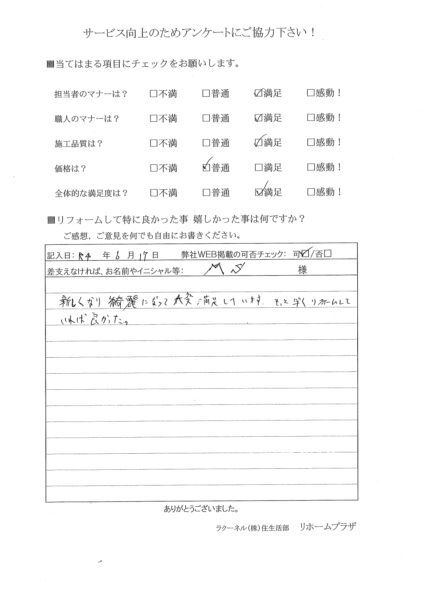 サービス向上のためアンケートにご協力下さい！
■当てはまる項目にチェックをお願いします。
担当者のマナーは？ □不満 □普通 ☑満足 □感動！
職人のマナーは？ □不満 □普通 ☑満足 □感動！
施工品質は？ □不満 □普通 ☑満足 □感動！
価格は？ □不満 ☑普通 □満足 □感動！
全体的な満足度は？ □不満 □普通 ☑満足 □感動！
■リフォームして特に良かった事 嬉しかった事は何ですか？
ご感想、ご意見を何でも自由にお書きください。
記入日：R4 年 6 月 17 日 弊社WEB掲載の可否チェック： 可☑/否□
差支えなければ、お名前やイニシャル等： 様
新しくなり 綺麗になって 大変 満足しています。もっと早く リホームして
いれば 良かった。
ありがとうございました。
ラクーネル（株）住生活部 リホームプラザ